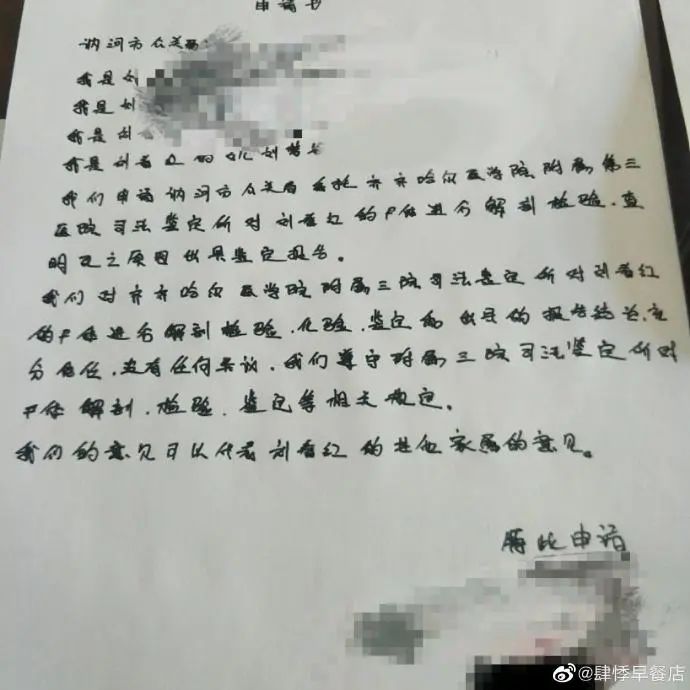 申请书
讷河市公安局:
我是刘
我是刘
我是刘
我是刘春红的女儿刘
我们申请讷河市公安局委托齐齐哈尔医学院附属第三
医院司法鉴定所对刘春红的尸体进行解剖检验,查
明死亡原因出具鉴定报告。
我们对齐齐哈尔医学院附属三院司法鉴定所对刘春红
的尸体进行解剖检验、化验、鉴定后出具的报告结论,充
分信任,没有任何异议,我们遵守附属三院司法鉴定所对
尸体解剖、检验、鉴定等相关规定。
我们的意见可以代表刘春红的其他家属的意见。
特此申请
@肆悸早餐店